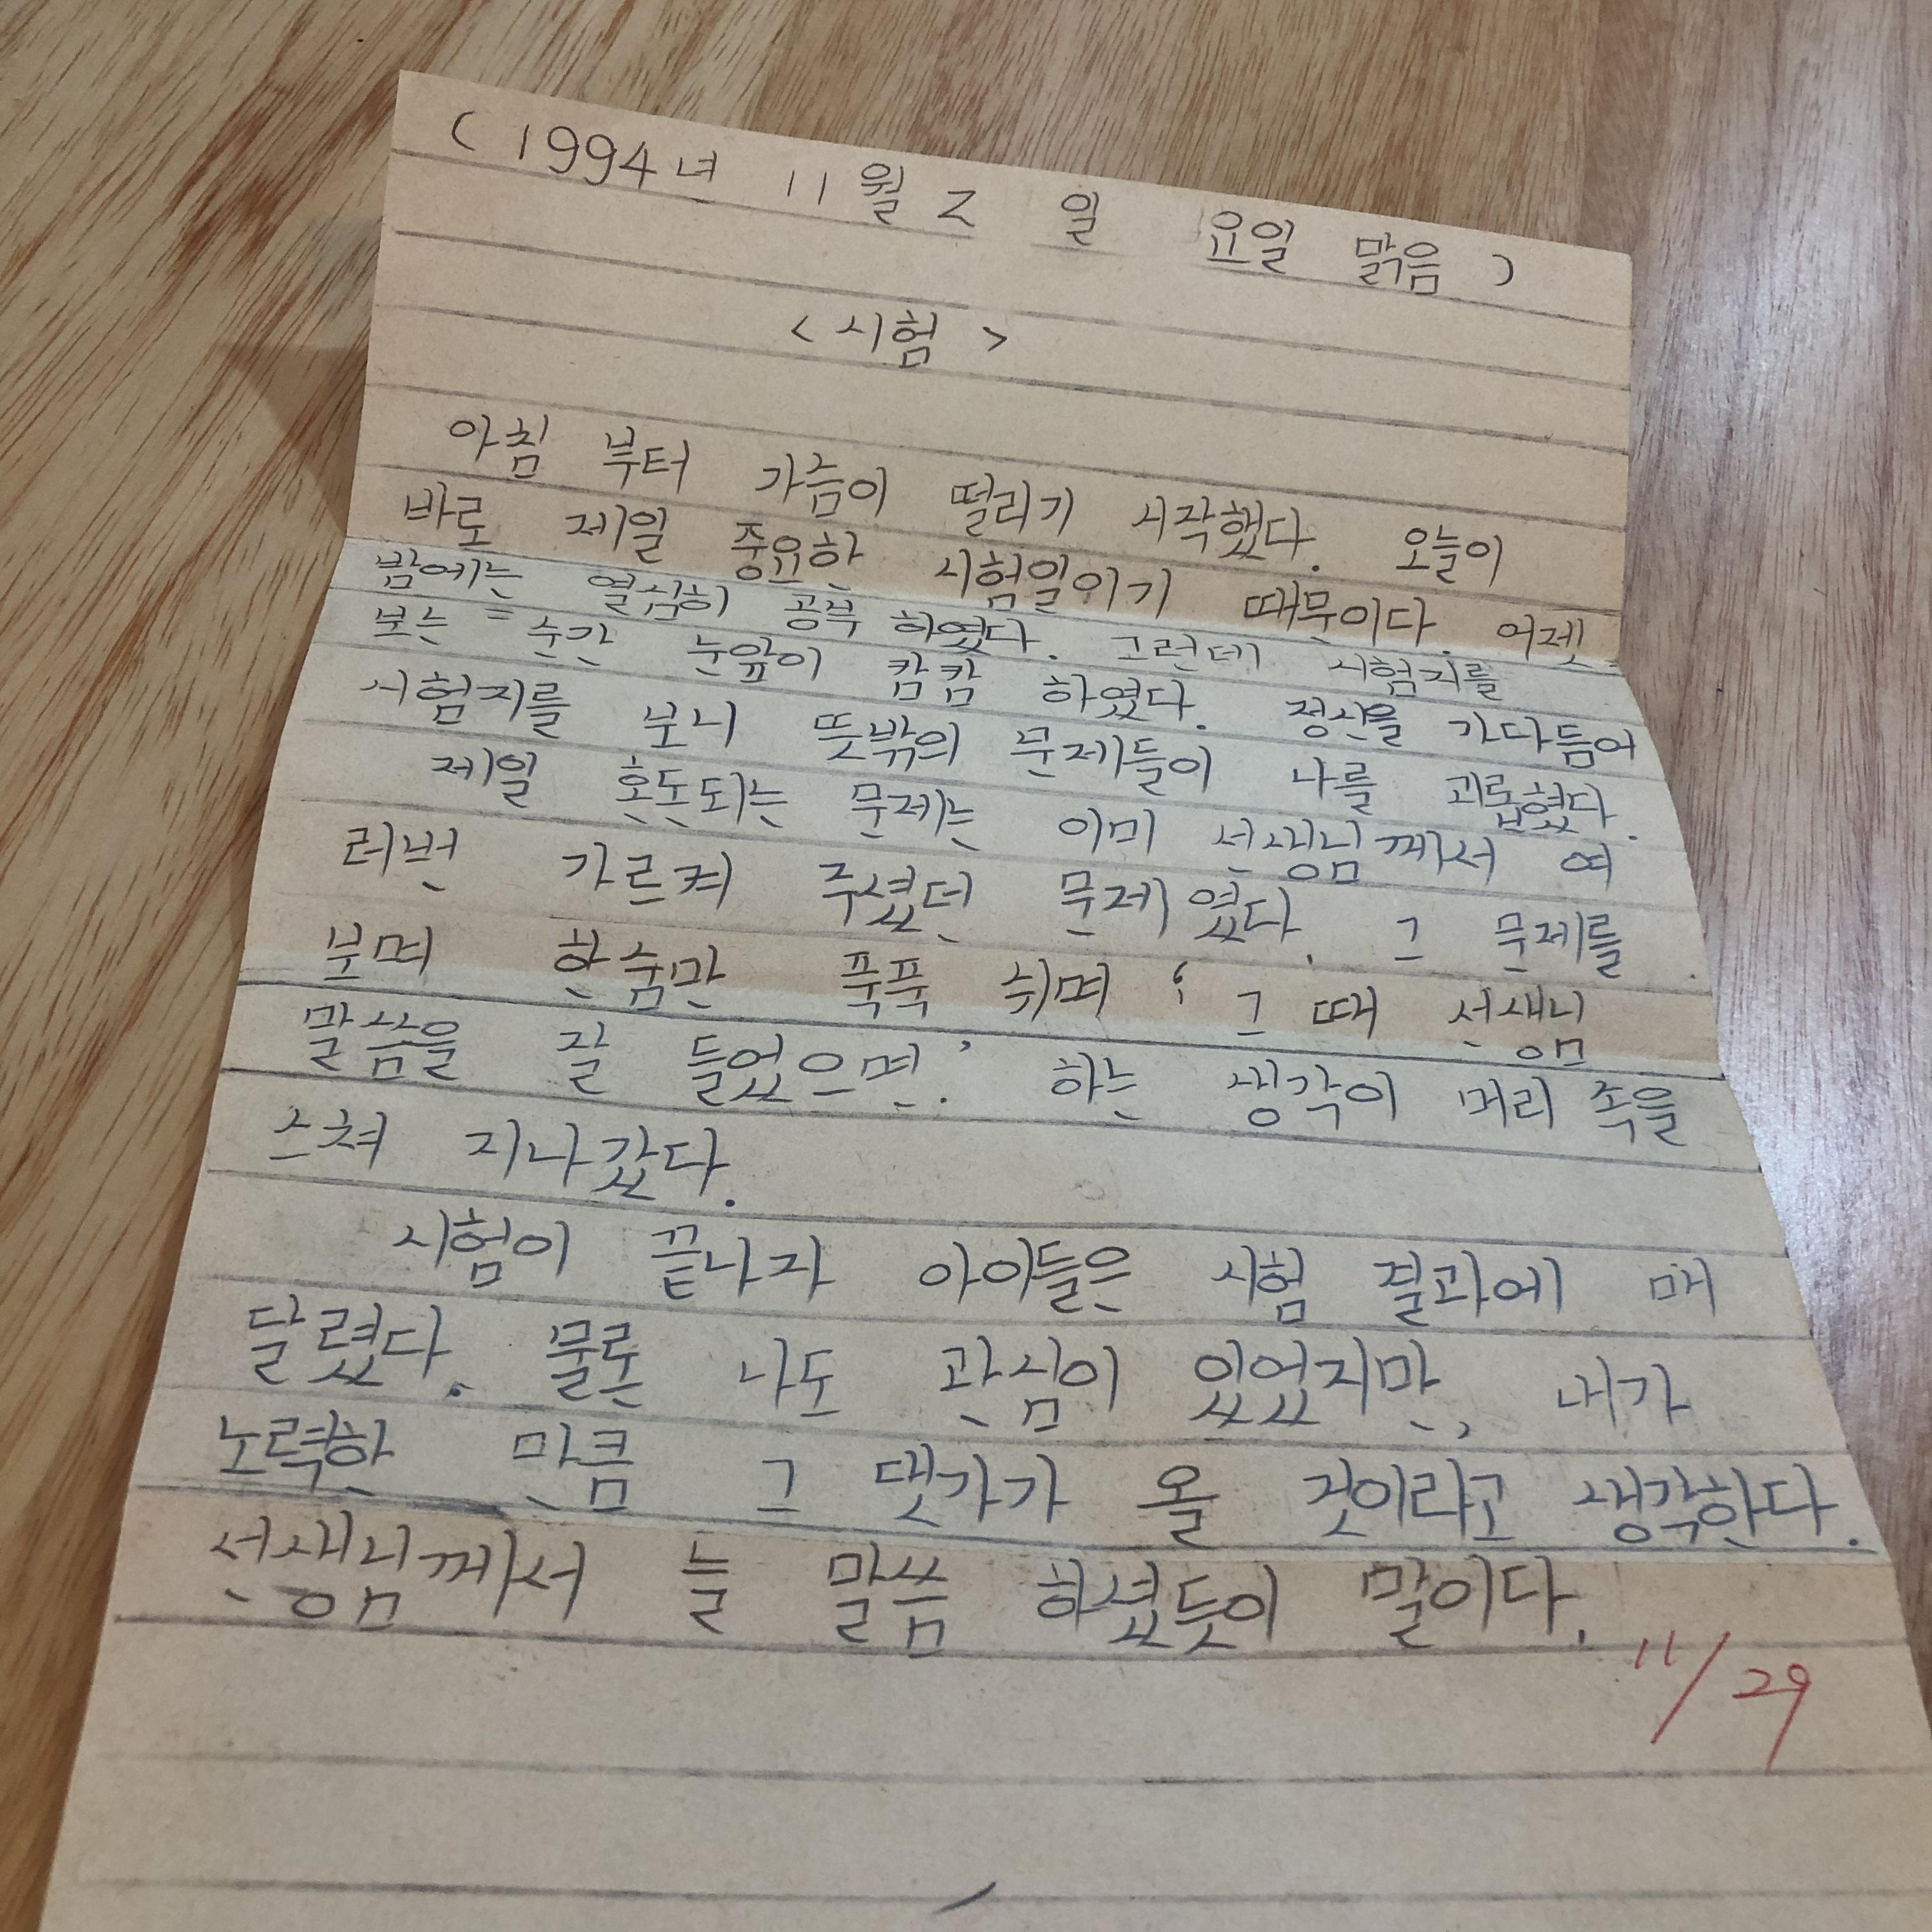 (1994년 11월 2 일 요일 맑음)
<시험>
아침 부터 가슴이 떨리기 시작했다. 오늘이
바로 제일 중요한 시험일이기 때문이다. 어젯
밤에는 열심히 공부 하였다. 그런데 시험지를
보는 순간 눈앞이 캄캄 하였다. 정신을 가다듬어
시험지를 보니 뜻밖의 문제들이 나를 괴롭혔다.
제일 혼돈되는 문제는 이미 선생님께서 여
러번 가르켜 주셨던 문제였다. 그 문제를
보며 한숨만 푹푹 쉬며 '그 때 선생님
말씀을 잘 들었으면.' 하는 생각이 머리 속을
스쳐 지나갔다.
시험이 끝나자 아이들은 시험 결과에 매
달렸다. 물론 나도 관심이 있었지만, 내가
노력한 만큼 그 댓가가 올 것이라고 생각한다.
선생님께서 늘 말씀 하셨듯이 말이다.
11/29